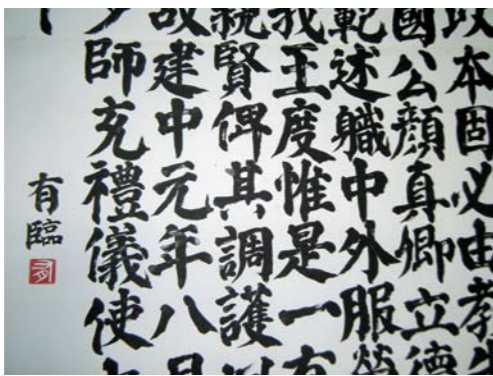 政本固必由教
國公顏真卿立德
範述職中外服勞
我王度惟是一有
親賢俾其調護
故建中元年八月
少師充禮儀使
有臨